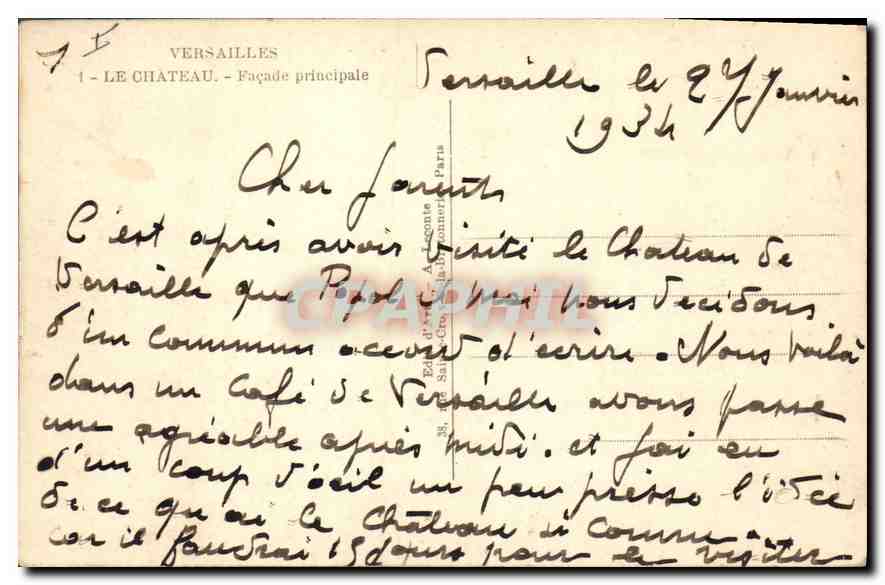 VERSAILLES
1 - LE CHÂTEAU. - Façade principale
Versaille le 27 Janvier
1934
Cher Parents
C'est après avoir visité le Chateau de
Versaille que Popol et moi nous decidons
d'un commun accord d'ecrire. Nous voilà
dans un café de Versaille avons passe
une agréable après midi. et j'ai eu
d'un coup d'oeil un peu presse l'idée
de ce qu'ai le Château si connu.
car il faudrai 15 jours pour le visiter
Edit. d'Art - A. Leconte
38, rue Sainte-Croix-de-la-Bretonnerie - Paris
CPAPHIL